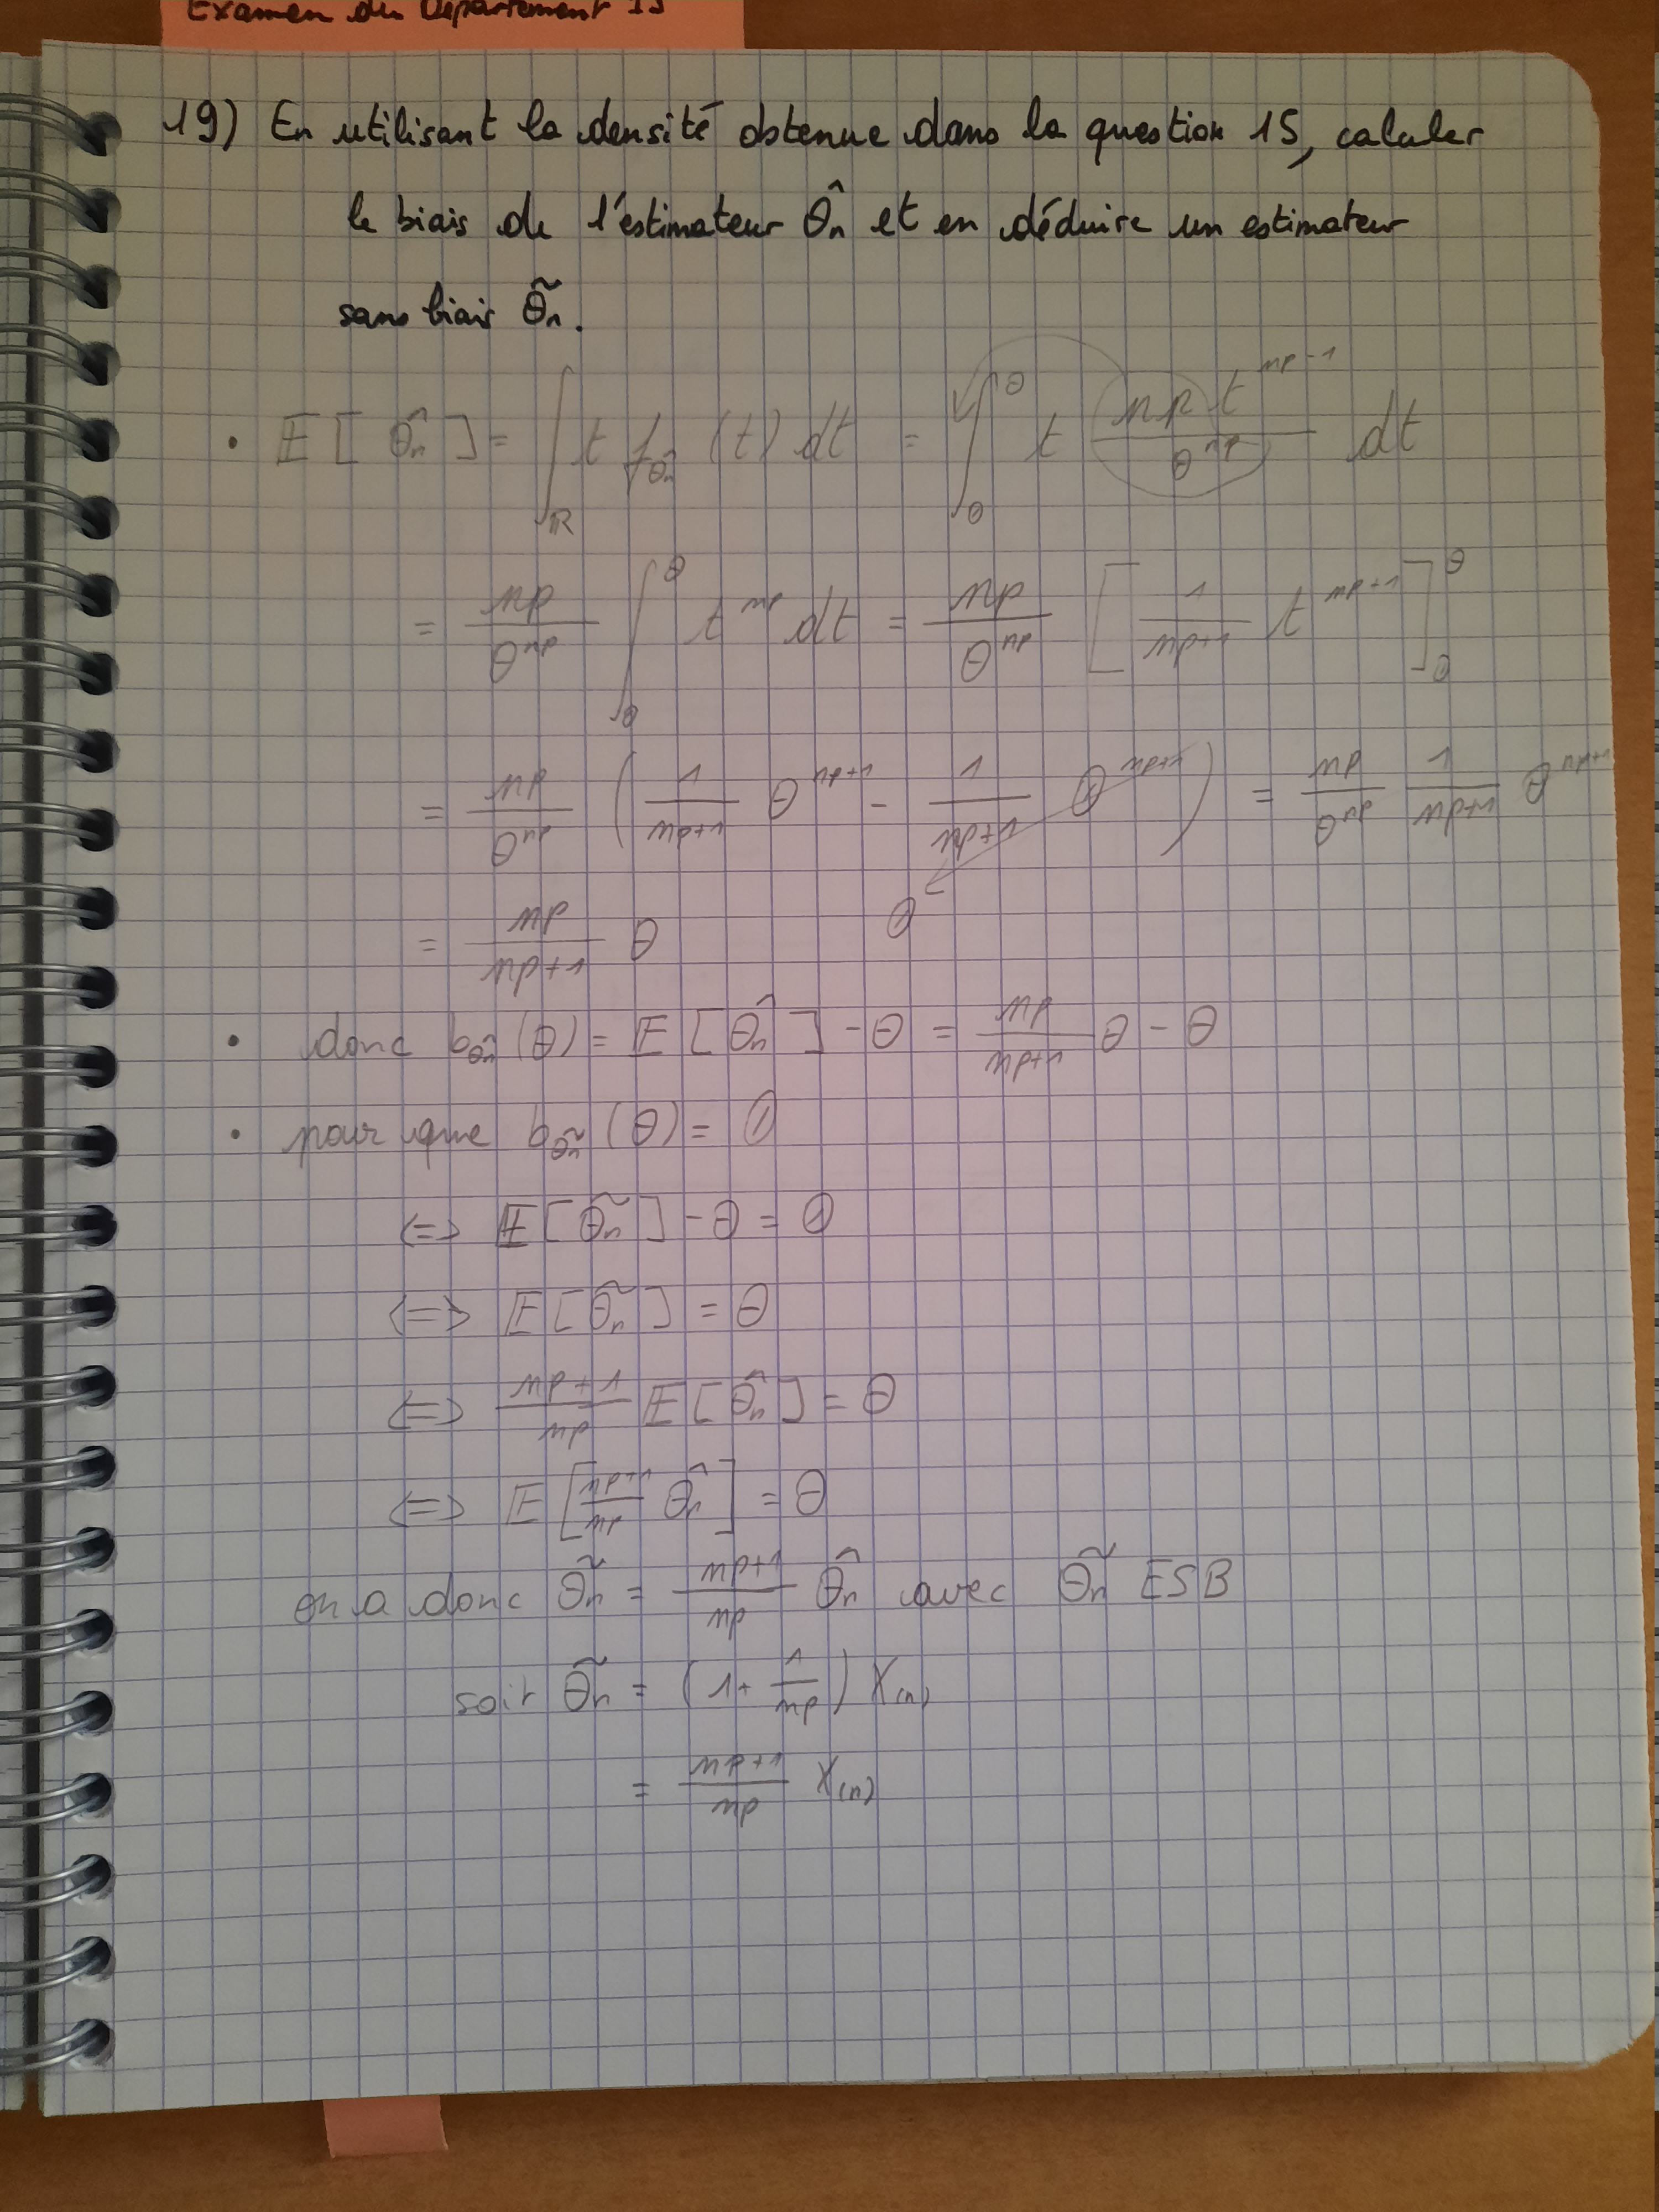 Examen du Département IS
19) En utilisant la densité obtenue dans la question 15, calculer
le biais de l'estimateur θ̂n et en déduire un estimateur
sans biais θ̃n.
• E[θ̂n] = ∫_R^ t f_θ̂n (t) dt = ∫_0^θ t (np t^(np-1))/(θ^(np)) dt
= np/θ^(np) ∫_0^θ t^(np) dt = np/θ^(np) [ 1/(np+1) t^(np+1) ]_0^θ
= np/θ^(np) ( 1/(np+1) θ^(np+1) - 1/(np+1) 0^(np+1) ) = np/θ^(np) 1/(np+1) θ^(np+1)
= np/(np+1) θ 0
• donc b_θ̂n (θ) = E[θ̂n] - θ = np/(np+1) θ - θ
• pour que b_θ̃n (θ) = 0
<=> E[θ̃n] - θ = 0
<=> E[θ̃n] = θ
<=> (np+1)/np E[θ̂n] = θ
<=> E[(np+1)/np θ̂n] = θ
on a donc θ̃n = (np+1)/np θ̂n avec θ̃n ESB
soit θ̃n = (1 + 1/np) X(n)
= (np+1)/np X(n)